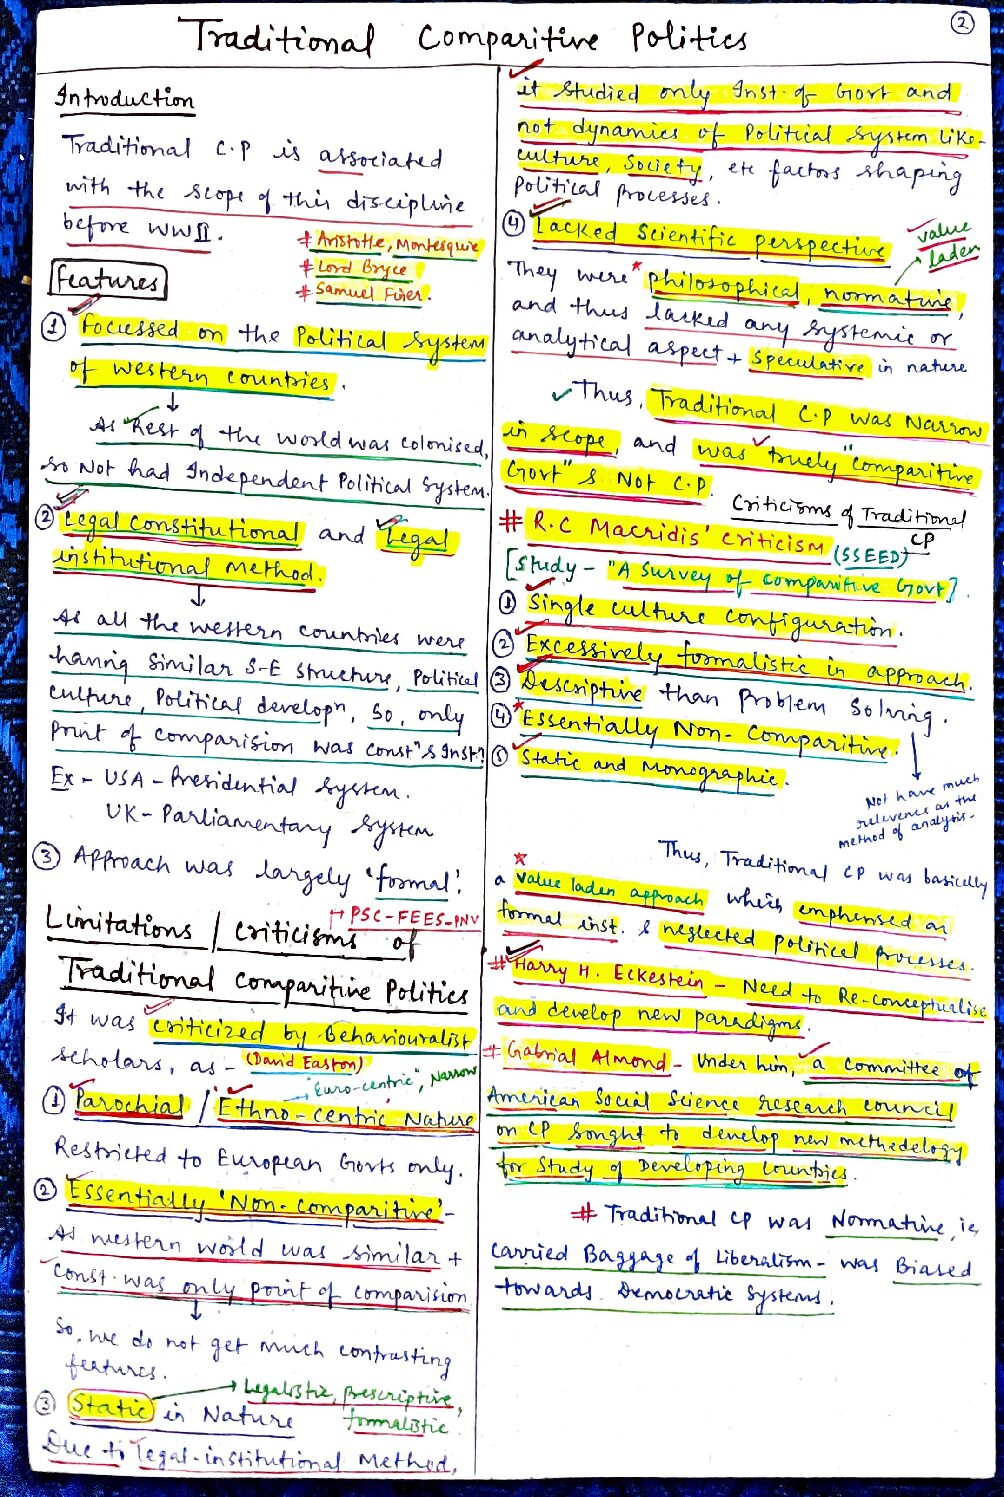 ②
Traditional Comparitive Politics
Introduction
Traditional C.P is associated
with the scope of this discipline
before WWII.
# Aristotle, Montesquie
# Lord Bryce
# Samuel Finer.
Features
① Focussed on the Political System
of western countries.
↓
As Rest of the world was colonised,
so Not had Independent Political System.
② Legal constitutional and Legal
institutional Method.
↓
As all the western countries were
having similar S-E structure, Political
culture, Political developⁿ, So, only
point of comparision was constⁿ & Inst?
Ex - USA - Presidential System.
UK - Parliamentary System
③ Approach was largely 'formal'.
↦ PSC-FEES-PNV
Limitations / criticisms of
Traditional Comparitive Politics
It was criticized by Behaviouralist
scholars, as - (David Easton)
→ "Euro-centric", Narrow
① Parochial / Ethno-centric Nature
Restricted to European Govts only.
② Essentially 'Non-Comparitive' -
As western world was similar +
const. was only point of comparision
↓
So, we do not get much contrasting
features.
③ Static in Nature
→ Legalistic, prescriptive,
formalistic
Due to legal-institutional Method,
it studied only Inst. of Govt and
not dynamics of Political System like-
culture, Society, etc factors shaping
Political Processes.
④ Lacked Scientific perspective
value
laden
They were philosophical, normative,
and thus lacked any systemic or
analytical aspect + Speculative in nature
Thus, Traditional C.P was Narrow
in scope, and was truely "comparitive
Govt" & Not C.P.
Criticisms of Traditional
CP
# R.C Macridis' Criticism (SSEED)
[Study - "A Survey of Comparitive Govt].
① Single culture configuration.
② Excessively formalistic in approach.
③ Descriptive than Problem Solving.
④ Essentially Non-Comparitive.
⑤ Static and Monographic.
Not have much
relevence as the
method of analysis.
Thus, Traditional CP was basically
a value laden approach which emphersed on
formal inst. & neglected political processes.
# Harry H. Eckestein - Need to Re-conceptualise
and develop new paradigms.
# Gabrial Almond - Under him, a committee of
American Social Science research council
on CP sought to develop new methedelogy
for Study of Developing Countries.
# Traditional CP was Normative, ie,
carried Baggage of Liberalism - was Biased
towards Democratic Systems.